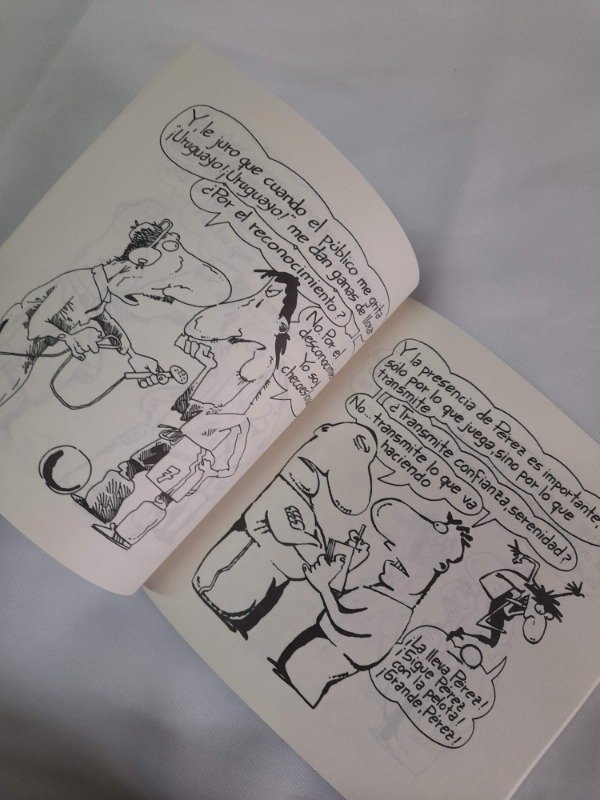 Y, le juro que cuando el público me grita
"¡Uruguayo! ¡Uruguayo!" me dan ganas de
¿Por el reconocimiento?
No. Por el
Yo soy
Y la presencia de Pérez es importante,
solo por lo que juega, sino por lo que
transmite
¿Transmite confianza, serenidad?
No... transmite lo que va
haciendo
¡La lleva Pérez!
¡Sigue Pérez
con la pelota!
¡Grande, Pérez!